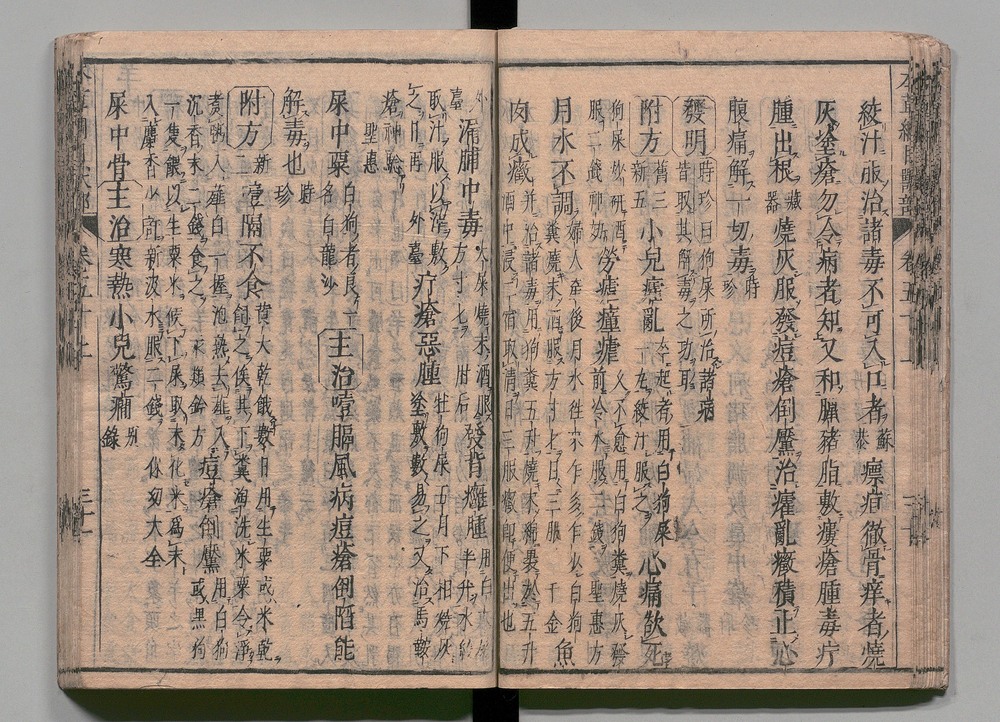 絞汁服治諸毒不可入口者蘇恭瘭疽徹骨痒者燒
灰塗瘡勿令病者知又和臘豬脂敷瘻瘡腫毒疔
腫出根藏器燒灰服發痘瘡倒黶治癨亂癥積止心
腹痛解一切毒時珍
發明時珍曰狗屎所治諸病皆取其解毒之功耳
附方舊二新五小兒癨亂卒起者用白狗屎一丸絞汁服之心痛欲死
狗屎炒研酒服二錢神妙勞瘧瘴瘧久不愈用白狗糞燒灰發前冷水服二錢聖惠方
月水不調婦人產後月水往來乍多乍少白狗糞燒末酒服方寸匕日三服千金魚
肉成癥并治諸毒用狗糞五升燒末綿裹於五升酒中浸二宿取清日三服癥即便出也
外臺漏脯中毒犬屎燒末酒服方寸匕肘后發背癰腫用白犬屎半升水絞
取汁服以滓敷之日再外臺疔瘡惡腫牡狗屎五月下燒灰塗敷數易之又治馬鞍
瘡神驗聖惠
屎中粟白狗者良一名白龍沙主治噎膈風病痘瘡倒陷能
解毒也時珍
附方新二噎膈不食黃犬乾餓數日用生粟或米乾飼之俟其下糞淘洗米粟令淨
煮粥入薤白一握泡熟去薤入沉香末二錢食之永類鈐方痘瘡倒黶用白狗或黑狗
一隻餵以生粟米候下屎取未化米為末入麝香少許新汲水服二錢保幼大全
屎中骨主治寒熱小兒驚癇別錄